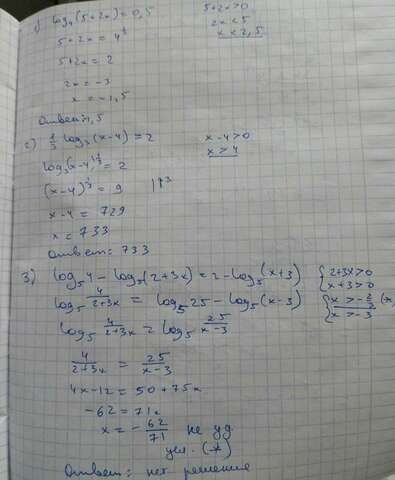 1) log₄(5+2x)=0,5 5+2x>0
5+2x = 4^½ 2x<5
5+2x = 2 x<2,5
2x = -3
x = -1,5
Ответ: 1,5
2) ⅓ log₃(x-4)=2 x-4>0
log₃(x-4)^⅓ = 2 x>4
(x-4)^⅓ = 9 |↑³
x-4 = 729
x = 733
Ответ: 733
3) log₅4 - log₅(2+3x) = 2 - log₅(x+3) { 2+3x>0
x+3>0
log₅ 4/(2+3x) = log₅25 - log₅(x-3) { x > -2/3 (*)
x > -3
log₅ 4/(2+3x) = log₅ 25/(x-3)
4/(2+3x) = 25/(x-3)
4x-12 = 50+75x
-62 = 71x
x = -62/71 не уд.
усл. (*)
Ответ: нет решение